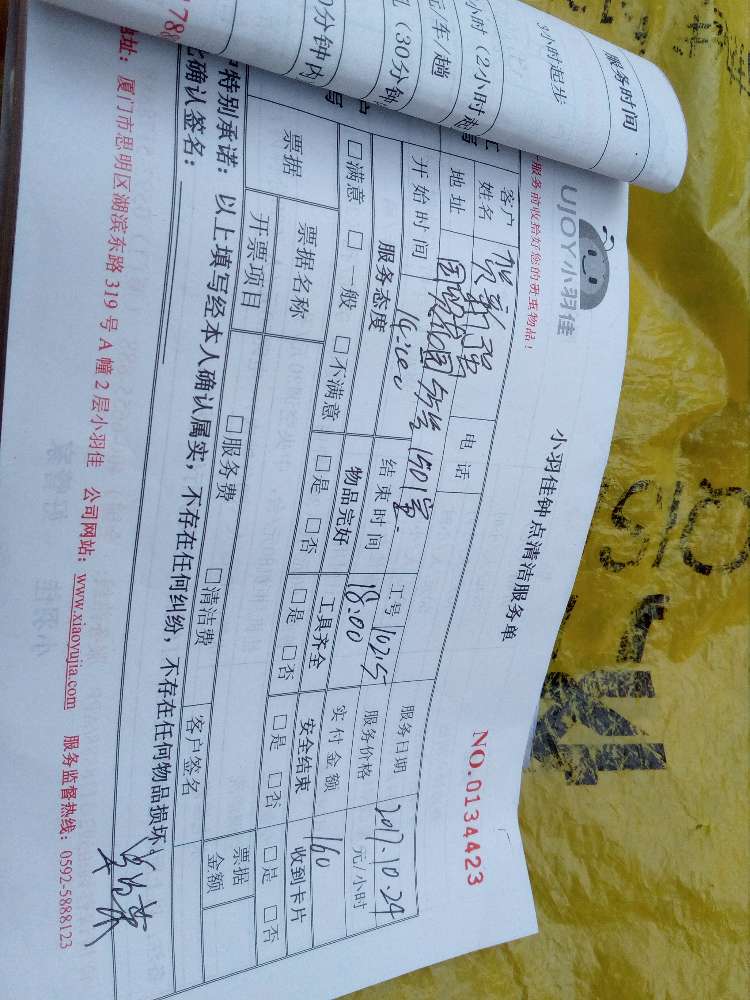 服务时间
3小时起步
小时（2小时
元/车/趟
（30分钟
0分钟内
UJOY小羽佳
服务前收拾好您的贵重物品！
小羽佳钟点清洁服务单
NO.0134423
客户
姓名
电话
工号 10215
服务日期 2017.10.24
地址 1501室
服务价格 元/小时
开始时间
结束时间 18:00
实付金额 160
服务态度 物品完好 工具齐全 安全结束 收到卡片
□满意 □一般 □不满意 □是 □否 □是 □否 □是 □否 □是 □否
票据 票据名称 票据
金额
开票项目 □服务费 □清洁费 客户签名
特别承诺：以上填写经本人确认属实，不存在任何纠纷，不存在任何物品损坏。
确认签名：
址：厦门市思明区湖滨东路319号A幢2层小羽佳 公司网站：www.xiaoyujia.com 服务监督热线：0592-5888123